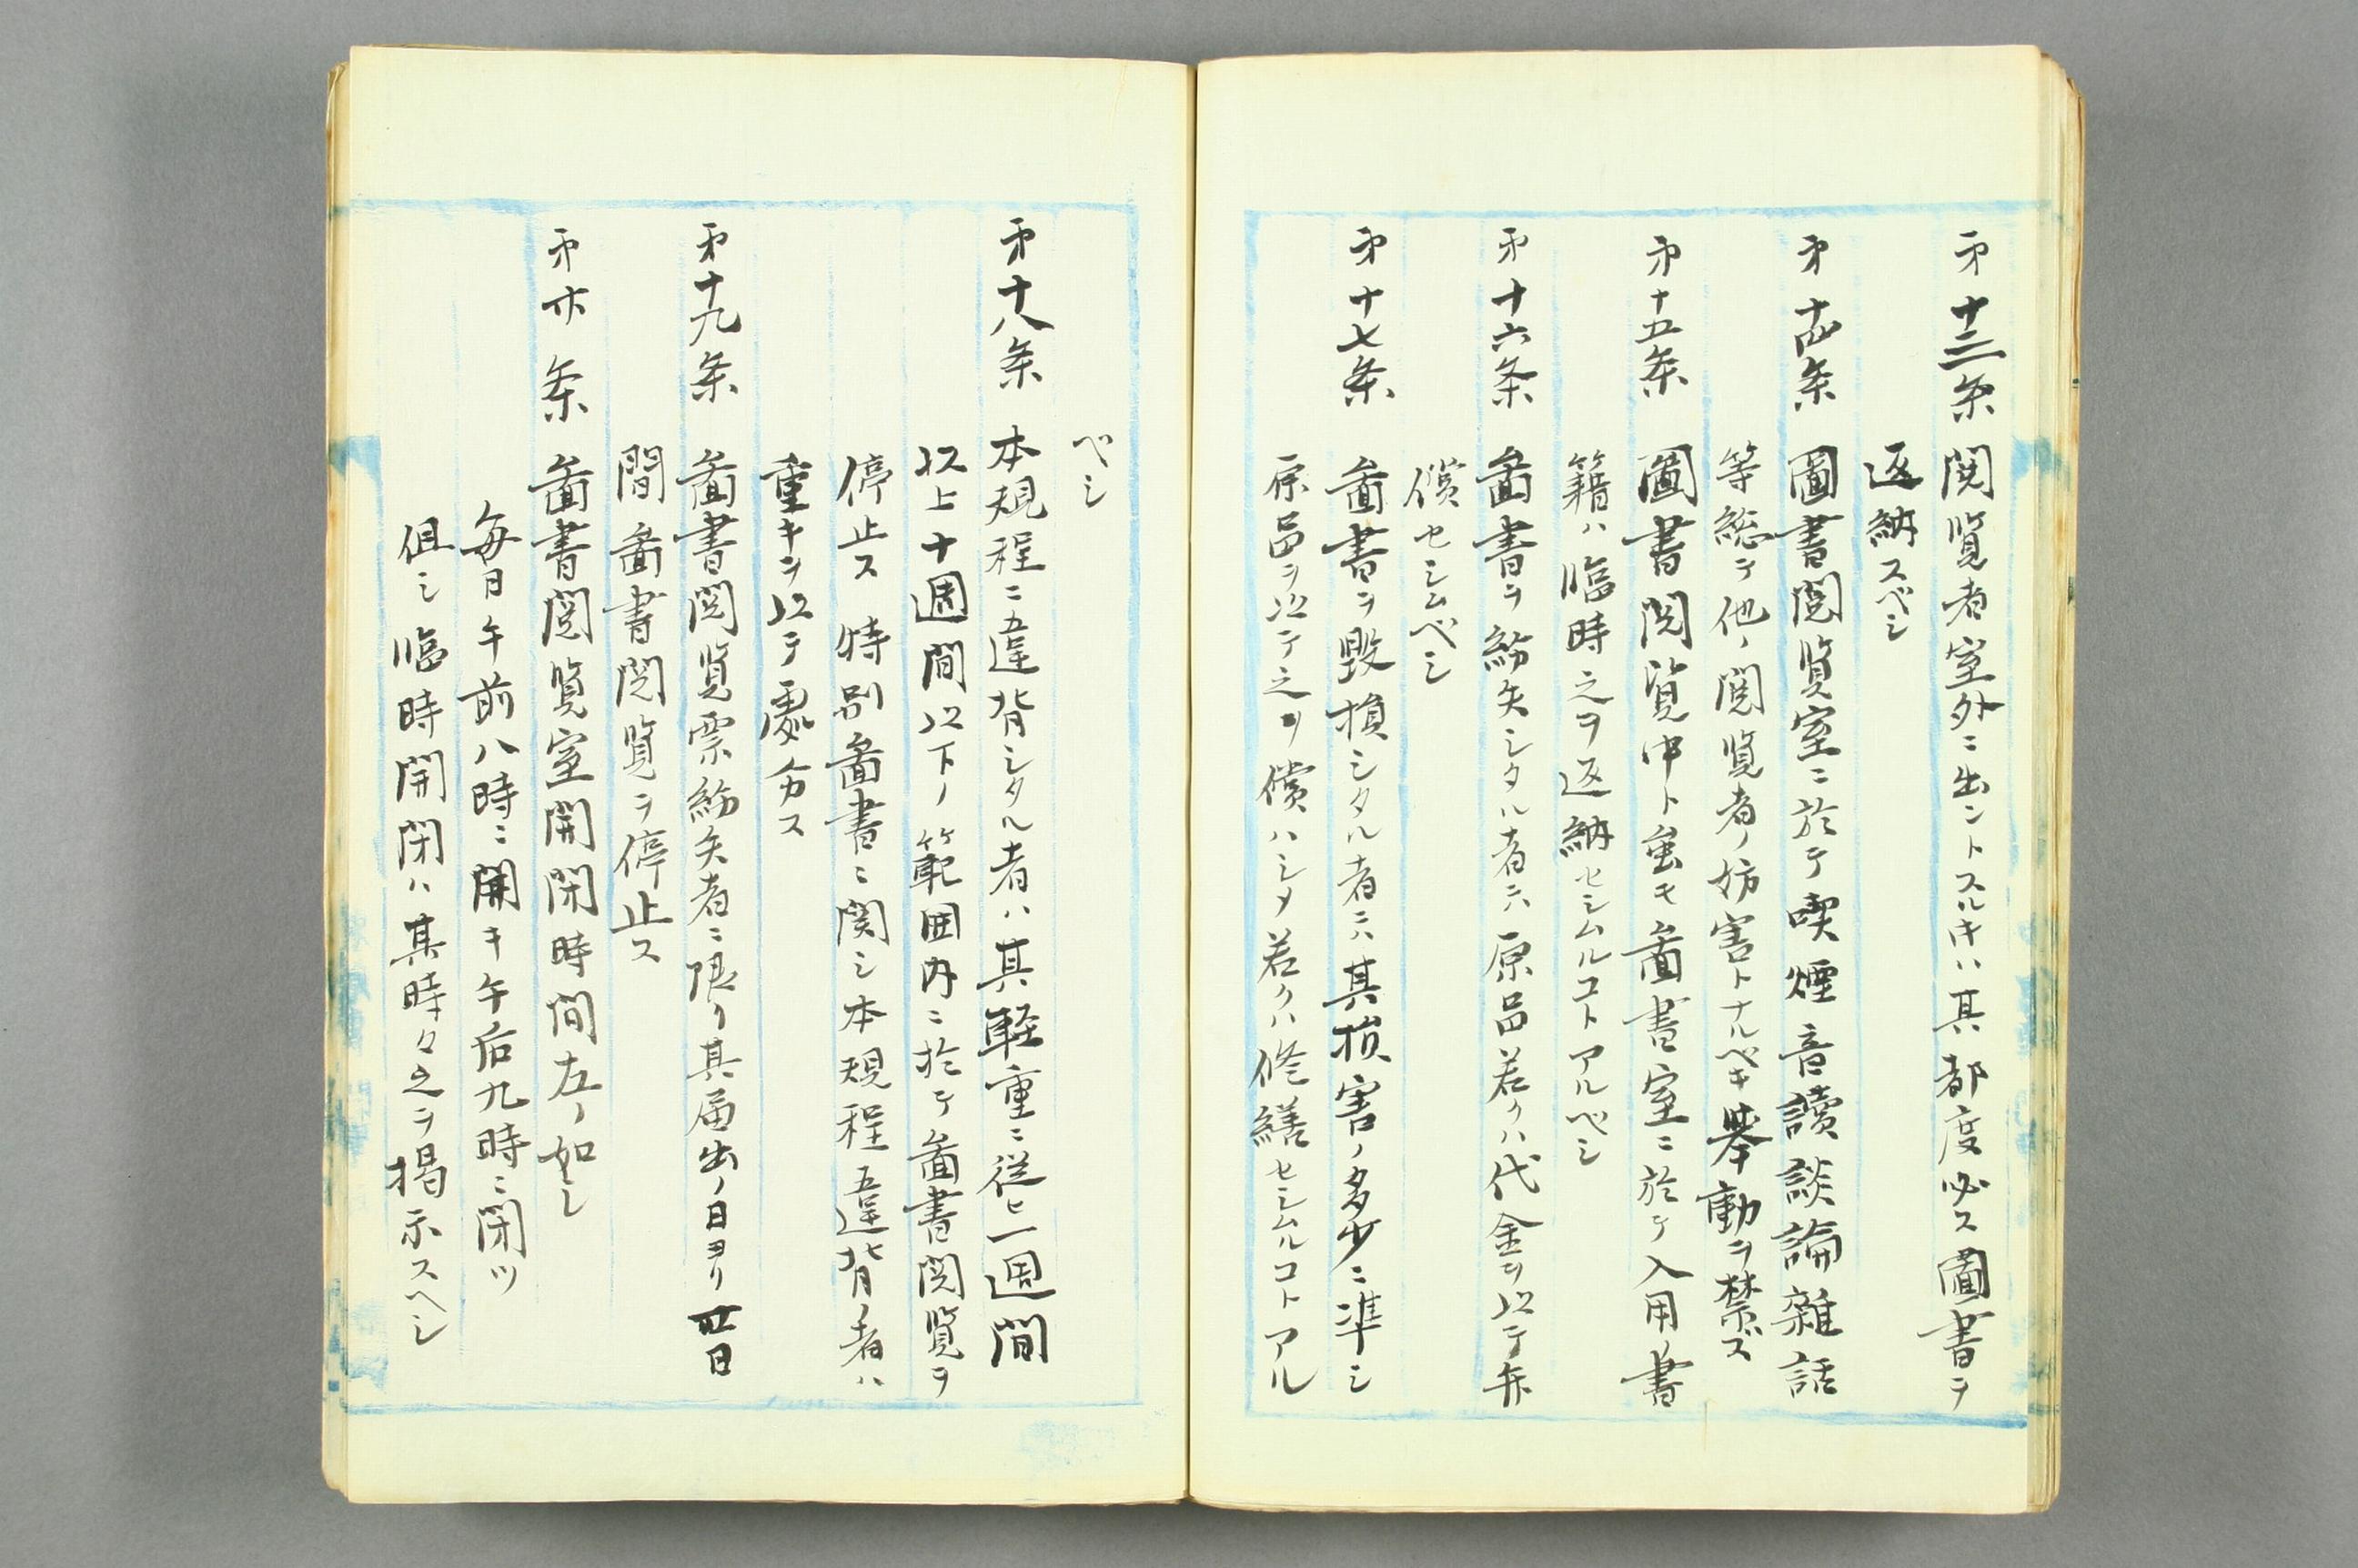 第十三条 閲覧者室外ニ出ントスルキハ其都度必ス圖書ヲ
返納スベシ
第十四条 圖書閲覧室ニ於テ喫煙音讀談論雑話
等総テ他ノ閲覧者ノ妨害トナルベキ挙動ヲ禁ズ
第十五条 圖書閲覧中ト雖モ圖書室ニ於テ入用ノ書
籍ハ臨時之ヲ返納セシムルコトアルベシ
第十六条 圖書ヲ紛失シタル者ニハ原品若クハ代金ヲ以テ弁
償セシムベシ
第十七条 圖書ヲ毀損シタル者ニハ其損害ノ多少ニ準シ
原品ヲ以テ之ヲ償ハシメ若クハ修繕セシムルコトアル
ベシ
第十八条 本規程ニ違背シタル者ハ其軽重ニ従ヒ一週間
以上十週間以下ノ範囲内ニ於テ圖書閲覧ヲ
停止ス特別圖書ニ関シ本規程違背ノ者ハ
重キヲ以テ處分ス
第十九条 圖書閲覧票紛失者ニ限リ其届出ノ日ヨリ廿日
間圖書閲覧ヲ停止ス
第廿条 圖書閲覧室開閉時間左ノ如シ
毎日午前八時ニ開キ午后九時ニ閉ツ
但シ臨時開閉ハ其時々之ヲ掲示スベシ